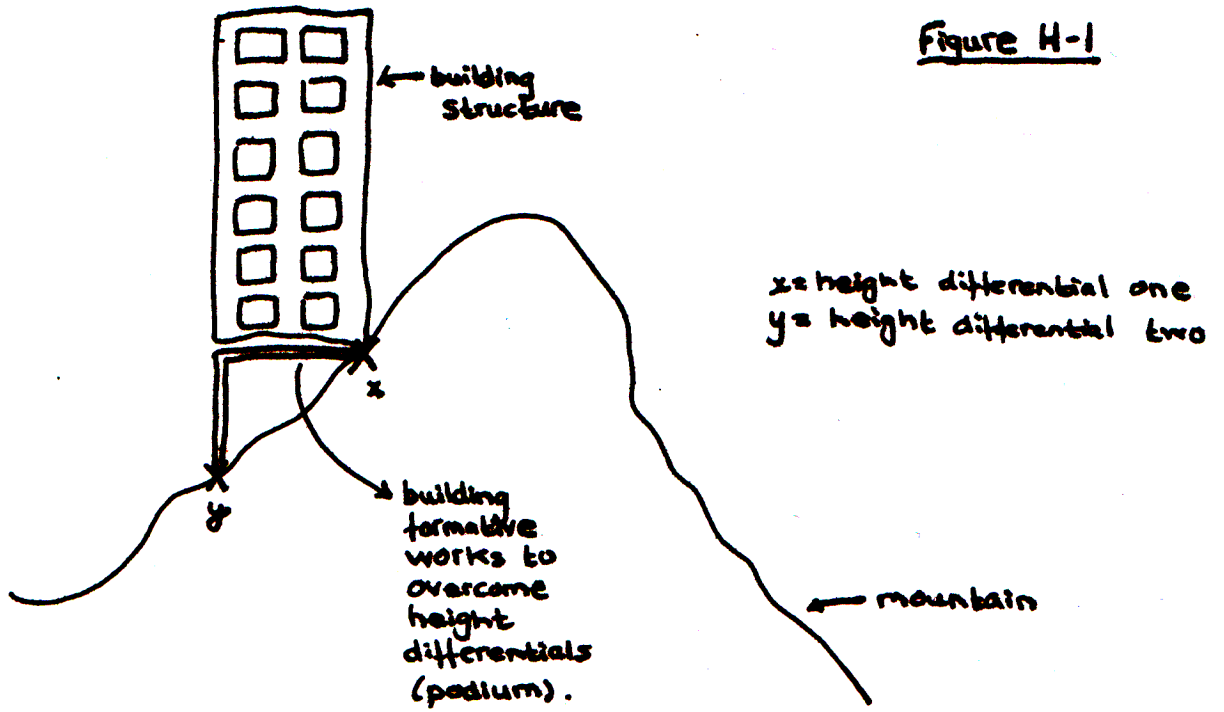 Figure H-1
building
structure
x= height differential one
y= height differential two
x
y
building
formative
works to
overcome
height
differentials
(podium).
mountain